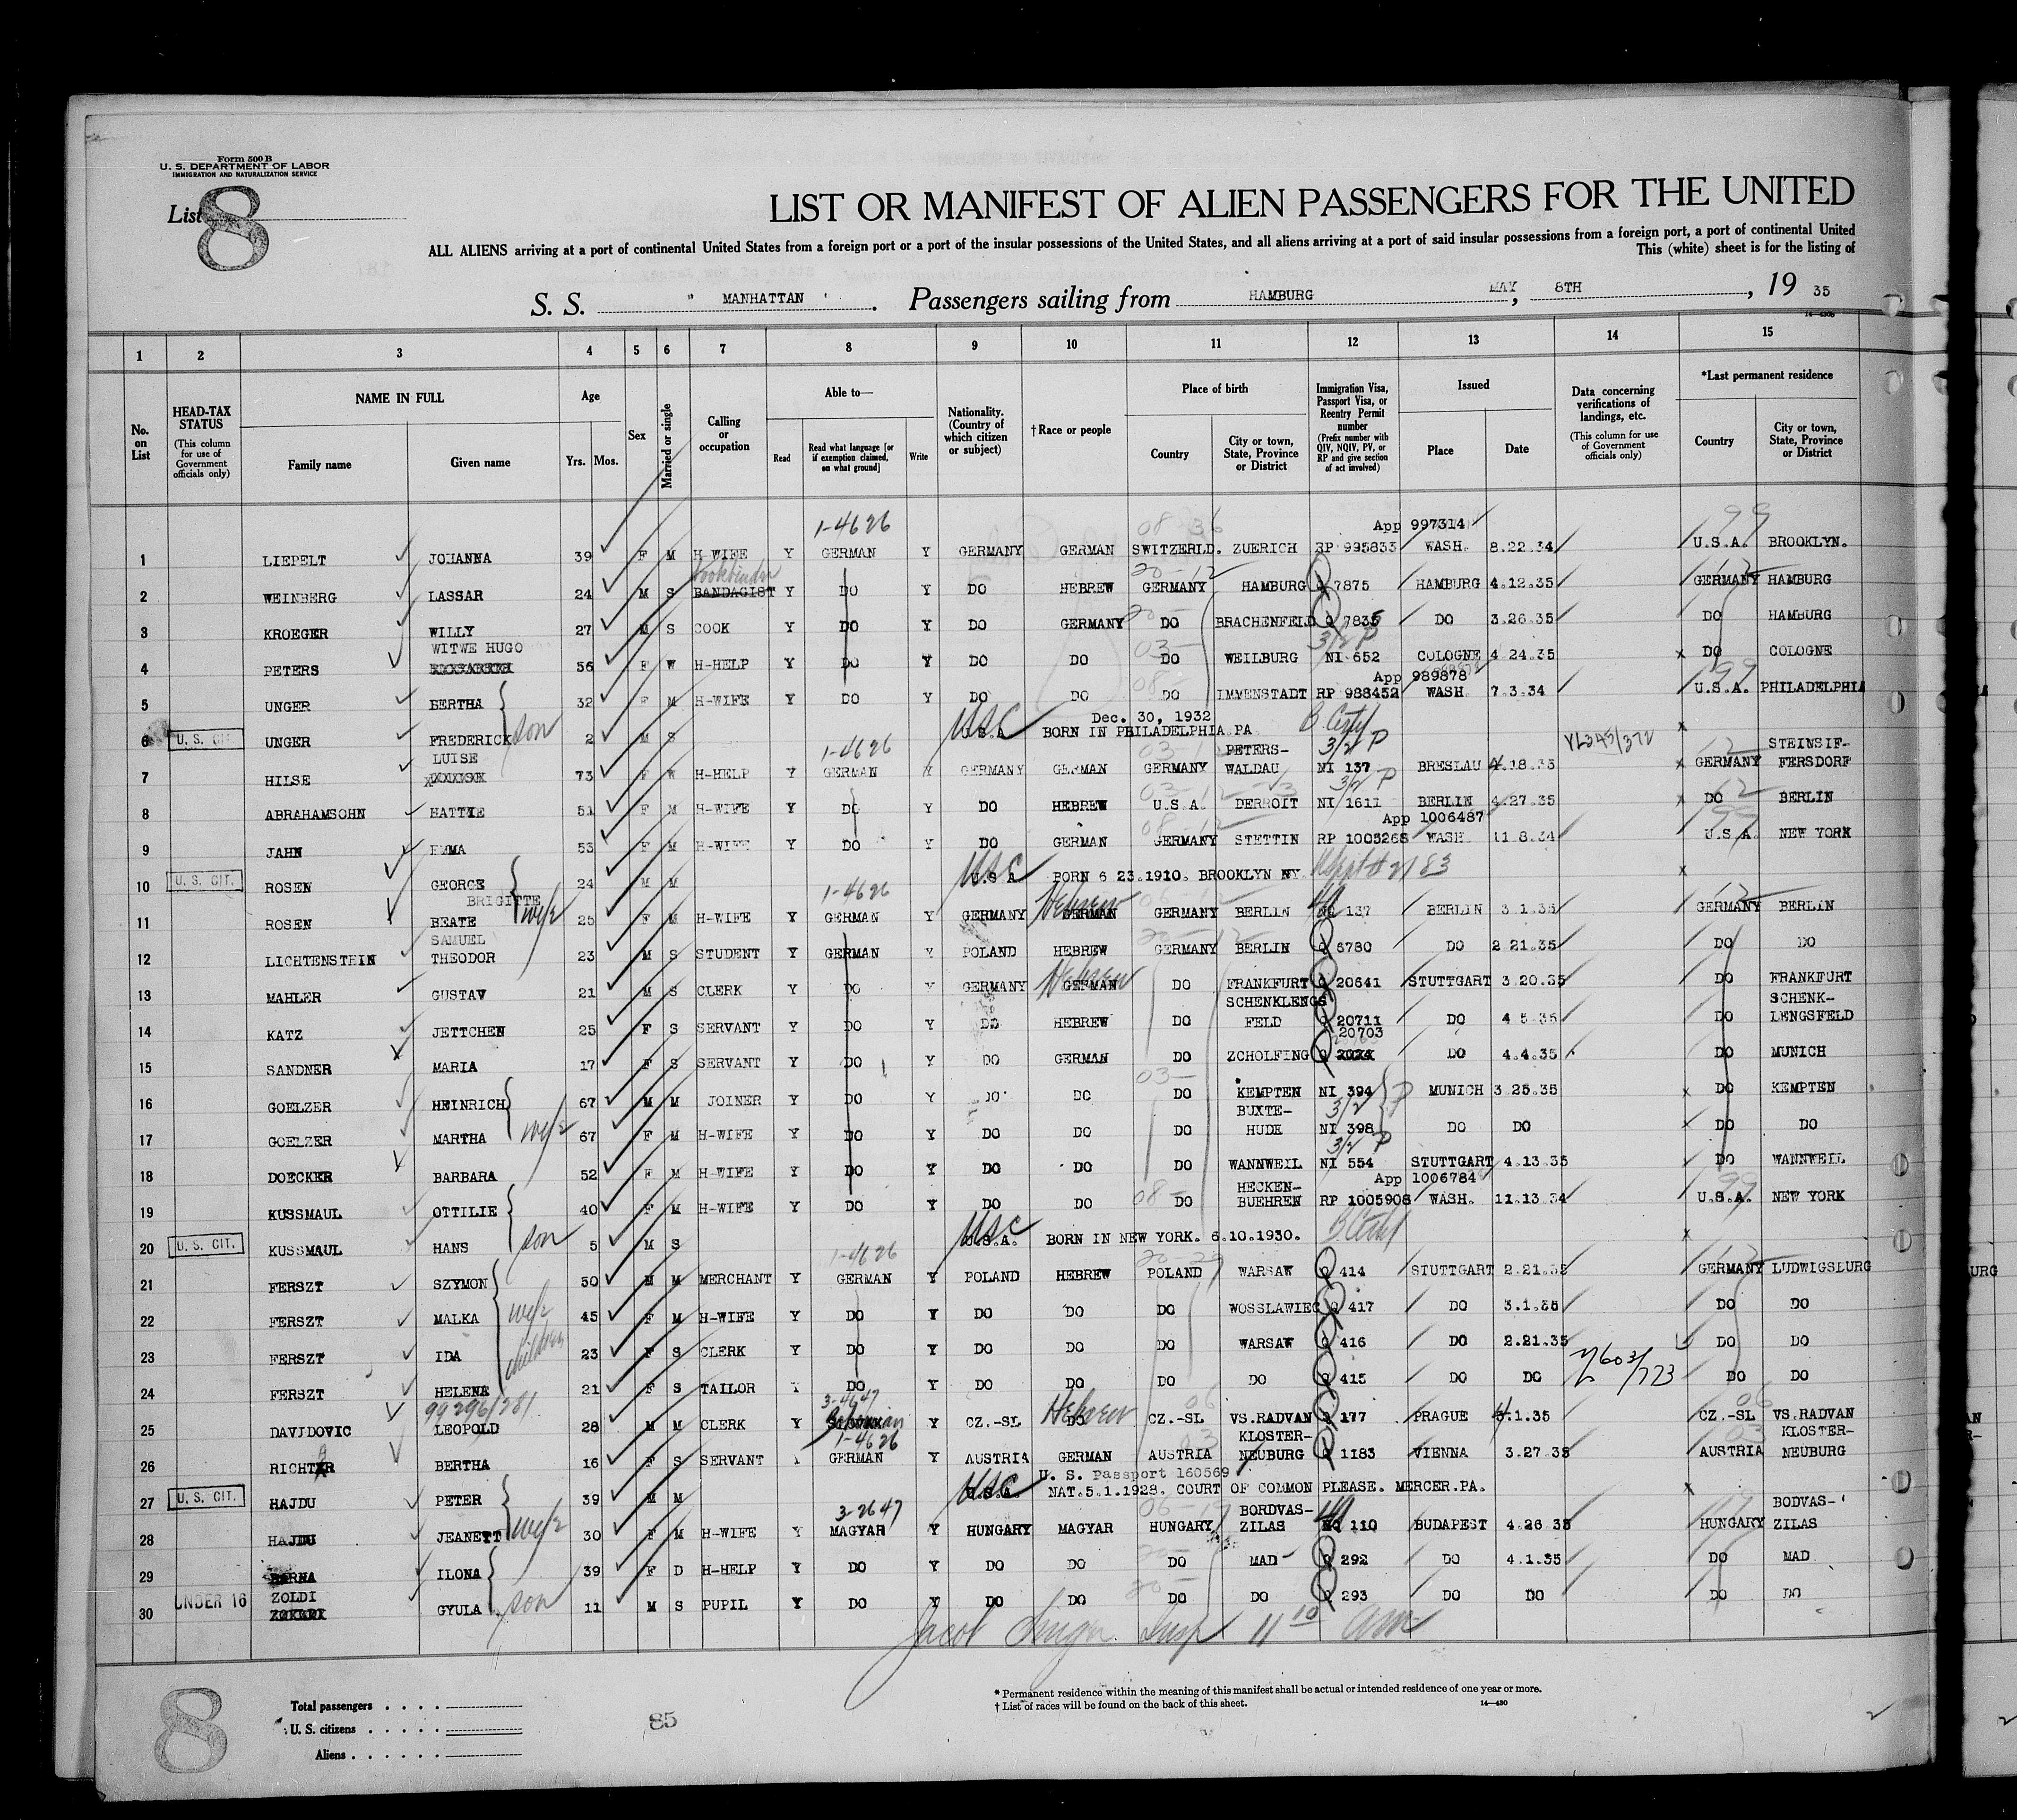 Form 500 B
U. S. DEPARTMENT OF LABOR
IMMIGRATION AND NATURALIZATION SERVICE
List 8
LIST OR MANIFEST OF ALIEN PASSENGERS FOR THE UNITED
ALL ALIENS arriving at a port of continental United States from a foreign port or a port of the insular possessions of the United States, and all aliens arriving at a port of said insular possessions from a foreign port, a port of continental United
This (white) sheet is for the listing of
S. S. " MANHATTAN ' . Passengers sailing from HAMBURG MAY , 8TH , 19 35
1 2 3 4 5 6 7 8 9 10 11 12 13 14 15
No. on List
HEAD-TAX STATUS (This column for use of Government officials only)
NAME IN FULL Family name Given name
Age Yrs. Mos.
Sex
Married or single
Calling or occupation
Able to— Read Read what language [or if exemption claimed, on what ground] Write
Nationality. (Country of which citizen or subject)
†Race or people
Place of birth Country City or town, State, Province or District
Immigration Visa, Passport Visa, or Reentry Permit number (Prefix number with QIV, NQIV, PV, or RP and give section of act involved)
Issued Place Date
Data concerning verifications of landings, etc. (This column for use of Government officials only)
*Last permanent residence Country City or town, State, Province or District
1-4626 08 36 App 997314 99
1 LIEPELT JOHANNA 39 F M H WIFE Y GERMAN Y GERMANY GERMAN SWITZERLD. ZUERICH RP 995833 WASH. 8.22.34 U.S.A. BROOKLYN.
Bookbinder 20-12 12
2 WEINBERG LASSAR 24 M S BANDAGIST Y DO Y DO HEBREW GERMANY HAMBURG Q 7875 HAMBURG 4.12.35 GERMANY HAMBURG
3 KROEGER WILLY 27 M S COOK Y DO Y DO GERMANY DO BRACHENFELD Q 7835 DO 3.26.35 DO HAMBURG
WITWE HUGO 03- 3/2 P
4 PETERS 56 F W H-HELP Y DO Y DO DO DO WEILBURG NI 652 COLOGNE 4 24.35 x DO COLOGNE
08- App 989878 99
5 UNGER BERTHA 32 F M H-WIFE Y DO Y DO DO DO IMMENSTADT RP 988452 WASH 7.3.34 U.S.A. PHILADELPHIA
USC Dec. 30, 1932
6 U. S. CIT. UNGER FREDERICK son 2 M S U.S.A. BORN IN PHILADELPHIA PA x
LUISE 1-4626 03-12 PETERS- 3/2 P VL343/372 12 STEINSIF-
7 HILSE 73 F W H-HELP Y GERMAN Y GERMANY GERMAN GERMANY WALDAU NI 137 BRESLAU 4.18.35 x GERMANY FERSDORF
3/2 P 12
8 ABRAHAMSOHN HATTIE 51 F M H-WIFE Y DO Y DO HEBREW U.S.A. DERROIT NI 1611 BERLIN 4.27.35 x DO BERLIN
08-12 App 1006487 99
9 JAHN EMMA 53 F M H-WIFE Y DO Y DO GERMAN GERMANY STETTIN RP 1005268 WASH 11.8.34 U.S.A. NEW YORK
USC
10 U. S. CIT. ROSEN GEORGE 24 M M U.S A BORN 6 23.1910. BROOKLYN NY. x
BRIGITTE wife 1-4626 Hebrew 06-12 12
11 ROSEN BEATE 25 F M H-WIFE Y GERMAN Y GERMANY GERMAN GERMANY BERLIN 137 BERLIN 3.1.35 GERMANY BERLIN
SAMUEL 20-12
12 LICHTENSTEIN THEODOR 23 M S STUDENT Y GERMAN Y POLAND HEBREW GERMANY BERLIN Q 6780 DO 2 21.35 DO DO
Hebrew
13 MAHLER GUSTAV 21 M S CLERK Y DO Y GERMANY GERMAN DO FRANKFURT Q 20641 STUTTGART 3.20.35 DO FRANKFURT
SCHENKLENGS SCHENK-
14 KATZ JETTCHEN 25 F S SERVANT Y DO Y DO HEBREW DO FELD Q 20711 DO 4 5.35 DO LENGSFELD
20703
15 SANDNER MARIA 17 F S SERVANT Y DO Y DO GERMAN DO ZCHOLFING Q DO 4.4.35 DO MUNICH
03-
16 GOELZER HEINRICH 67 M M JOINER Y DO Y DO DO DO KEMPTEN NI 394 P MUNICH 3 25.35 x DO KEMPTEN
wife BUXTE- 3/2
17 GOELZER MARTHA 67 F M H-WIFE Y DO Y DO DO DO HUDE NI 398 DO DO x DO DO
3/2 P
18 DOECKER BARBARA 52 F M H-WIFE Y DO Y DO DO DO WANNWEIL NI 554 STUTTGART 4.13.35 DO WANNWEIL
08- HECKEN- App 1006784 99
19 KUSSMAUL OTTILIE 40 F M H-WIFE Y DO Y DO DO DO BUEHREN RP 1005908 WASH. 11.13 34 U.S.A. NEW YORK
USC
20 U. S. CIT. KUSSMAUL HANS son 5 M S U.S.A. BORN IN NEW YORK. 6.10.1930. x
1-4626 12
21 FERSZT SZYMON 50 M M MERCHANT Y GERMAN Y POLAND HEBREW POLAND WARSAW Q 414 STUTTGART 2.21.35 GERMANY LUDWIGSBURG
wife
22 FERSZT MALKA 45 F M H-WIFE Y DO Y DO DO DO WOSSLAWIEC Q 417 DO 3.1.35 DO DO
children
23 FERSZT IDA 23 F S CLERK Y DO Y DO DO DO WARSAW Q 416 DO 2.21.35 DO DO
24 FERSZT HELENE 21 F S TAILOR Y DO Y DO DO DO DO Q 415 DO DO DO DO
99 296/281 3-4647 Hebrew 06 06
25 DAVIDOVIC LEOPOLD 28 M M CLERK Y Y CZ.-SL DO CZ.-SL VS.RADVAN Q 177 PRAGUE 4.1.35 CZ.-SL VS.RADVAN
1-4626 03 KLOSTER- 03 KLOSTER-
26 RICHTER BERTHA 16 F S SERVANT Y GERMAN Y AUSTRIA GERMAN AUSTRIA NEUBURG Q 1183 VIENNA 3.27.35 AUSTRIA NEUBURG
USC U. S. Passport 160569
27 U. S. CIT. HAJDU PETER 39 M M U.S.A. NAT.5.1.1928. COURT OF COMMON PLEASE. MERCER.PA. x
wife 3-2647 BORDVAS- BODVAS-
28 HAJDU JEANETT 30 F M H-WIFE Y MAGYAR Y HUNGARY MAGYAR HUNGARY ZILAS 110 BUDAPEST 4.26 35 HUNGARY ZILAS
29 BARNA ILONA 39 F D H-HELP Y DO Y DO DO DO MAD Q 292 DO 4.1.35 DO MAD
UNDER 16 ZOLDI
30 GYULA son 11 M S PUPIL Y DO Y DO DO DO DO Q 293 DO DO DO DO
Jacob Singer Insp 11 10 am
8
Total passengers
U. S. citizens
Aliens
85
* Permanent residence within the meaning of this manifest shall be actual or intended residence of one year or more.
† List of races will be found on the back of this sheet.
14—430